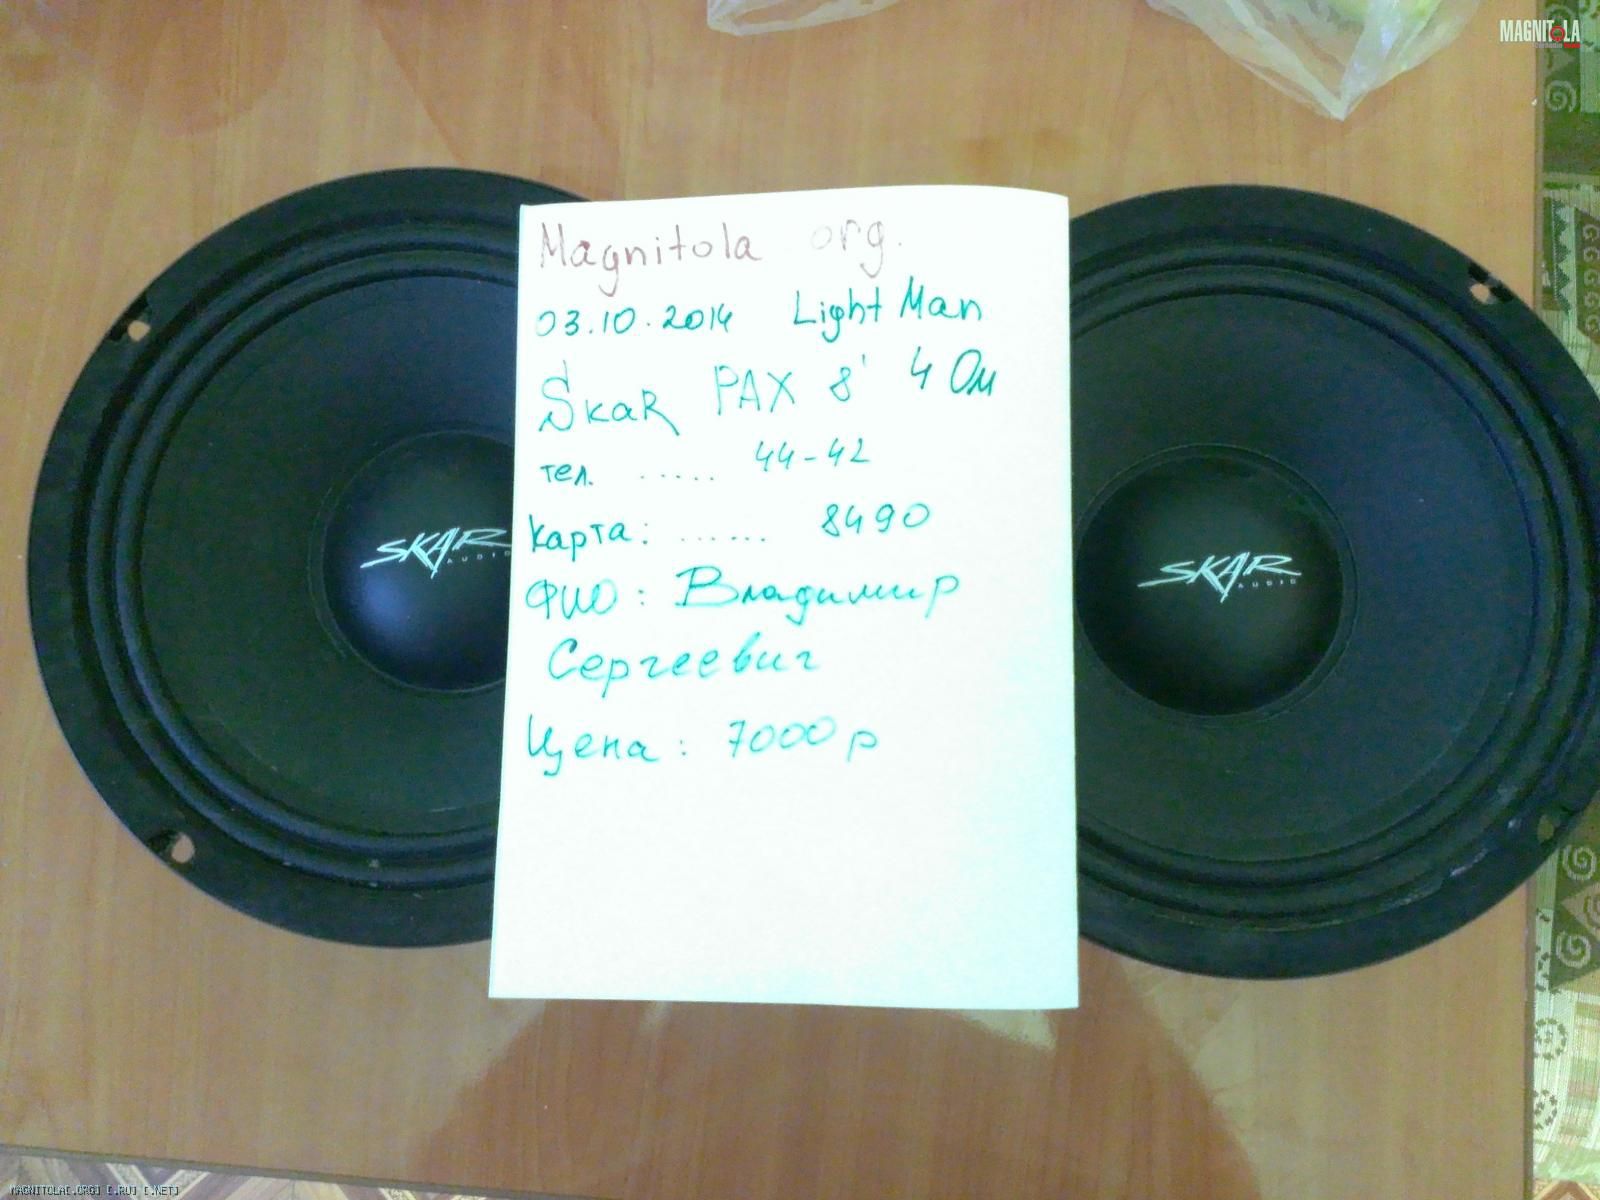 MAGNITOLA
Magnitola org.
03.10.2014 Light Man
Skar PAX 8' 4 Ом
тел. ..... 44-42
карта: ...... 8490
ФИО: Владимир
Сергеевич
Цена: 7000 р
SKAR
AUDIO
SKAR
AUDIO
MAGNITOLA[.ORG] [.RU] [.NET]